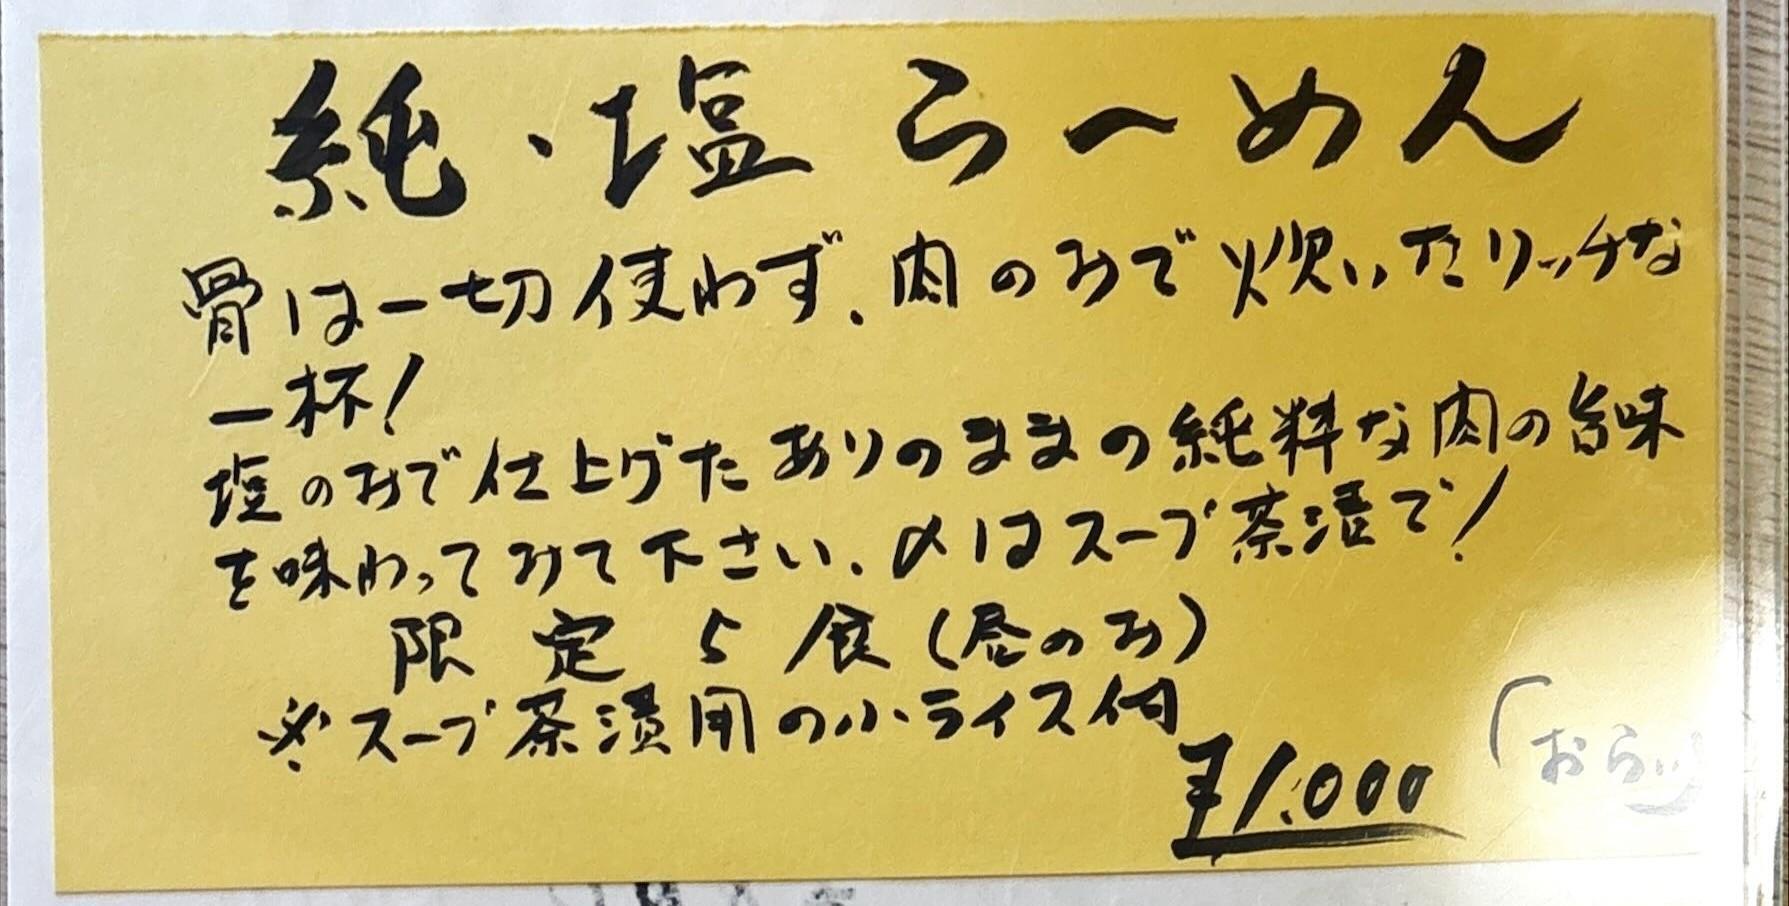 純・塩らーめん
骨は一切使わず、肉のみで炊いたリッチな
一杯!
塩のみで仕上げたありのままの純粋な肉の旨味
を味わってみて下さい、〆はスープ茶漬で!
限定5食(昼のみ)
※スープ茶漬用の小ライス付
¥1.000